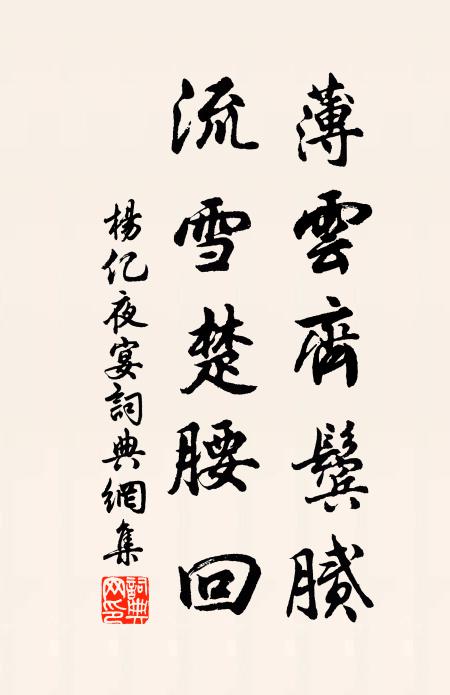 薄雲齊鬢膩
流雪楚腰回
楊亿夜宴詞典網集
詞典网印